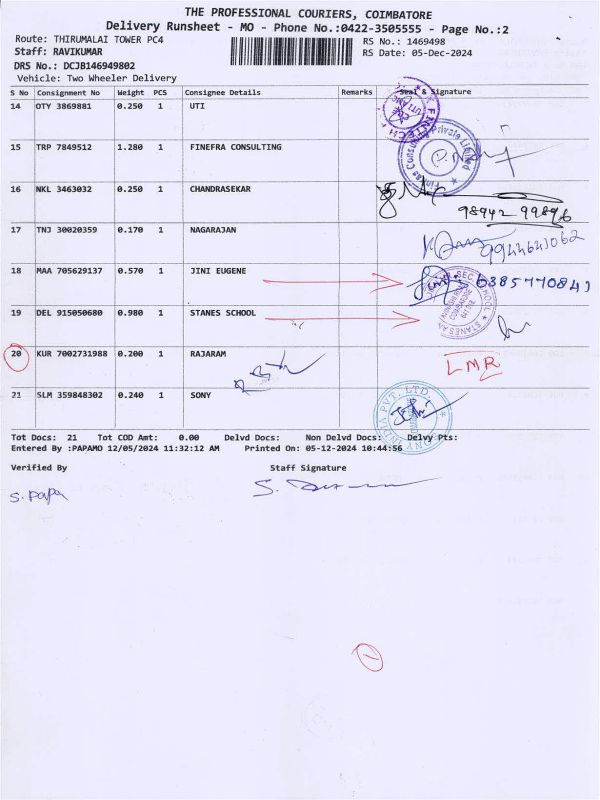 THE PROFESSIONAL COURIERS, COIMBATORE
Delivery Runsheet - MO - Phone No.:0422-3505555 - Page No.:2
Route: THIRUMALAI TOWER PC4
RS No.: 1469498
Staff: RAVIKUMAR
RS Date: 05-Dec-2024
DRS No.: DCJB146949802
Vehicle: Two Wheeler Delivery
S No Consignment No Weight PCS Consignee Details Remarks Seal & Signature
14 OTY 3869881 0.250 1 UTI
15 TRP 7849512 1.280 1 FINEFRA CONSULTING
16 NKL 3463032 0.250 1 CHANDRASEKAR
98942 99896
17 TNJ 30020359 0.170 1 NAGARAJAN
9944641062
18 MAA 705629137 0.570 1 JINI EUGENE
6385770841
19 DEL 915050680 0.980 1 STANES SCHOOL
20 KUR 7002731988 0.200 1 RAJARAM
LMR
21 SLM 359848302 0.240 1 SONY
Tot Docs: 21 Tot COD Amt: 0.00 Delvd Docs: Non Delvd Docs: Delvy Pts:
Entered By :PAPAMO 12/05/2024 11:32:12 AM Printed On: 05-12-2024 10:44:56
Verified By Staff Signature
S. Papa
1